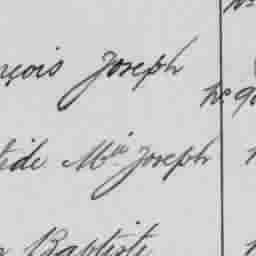 nçois Joseph
tide Mie Joseph
Baptiste